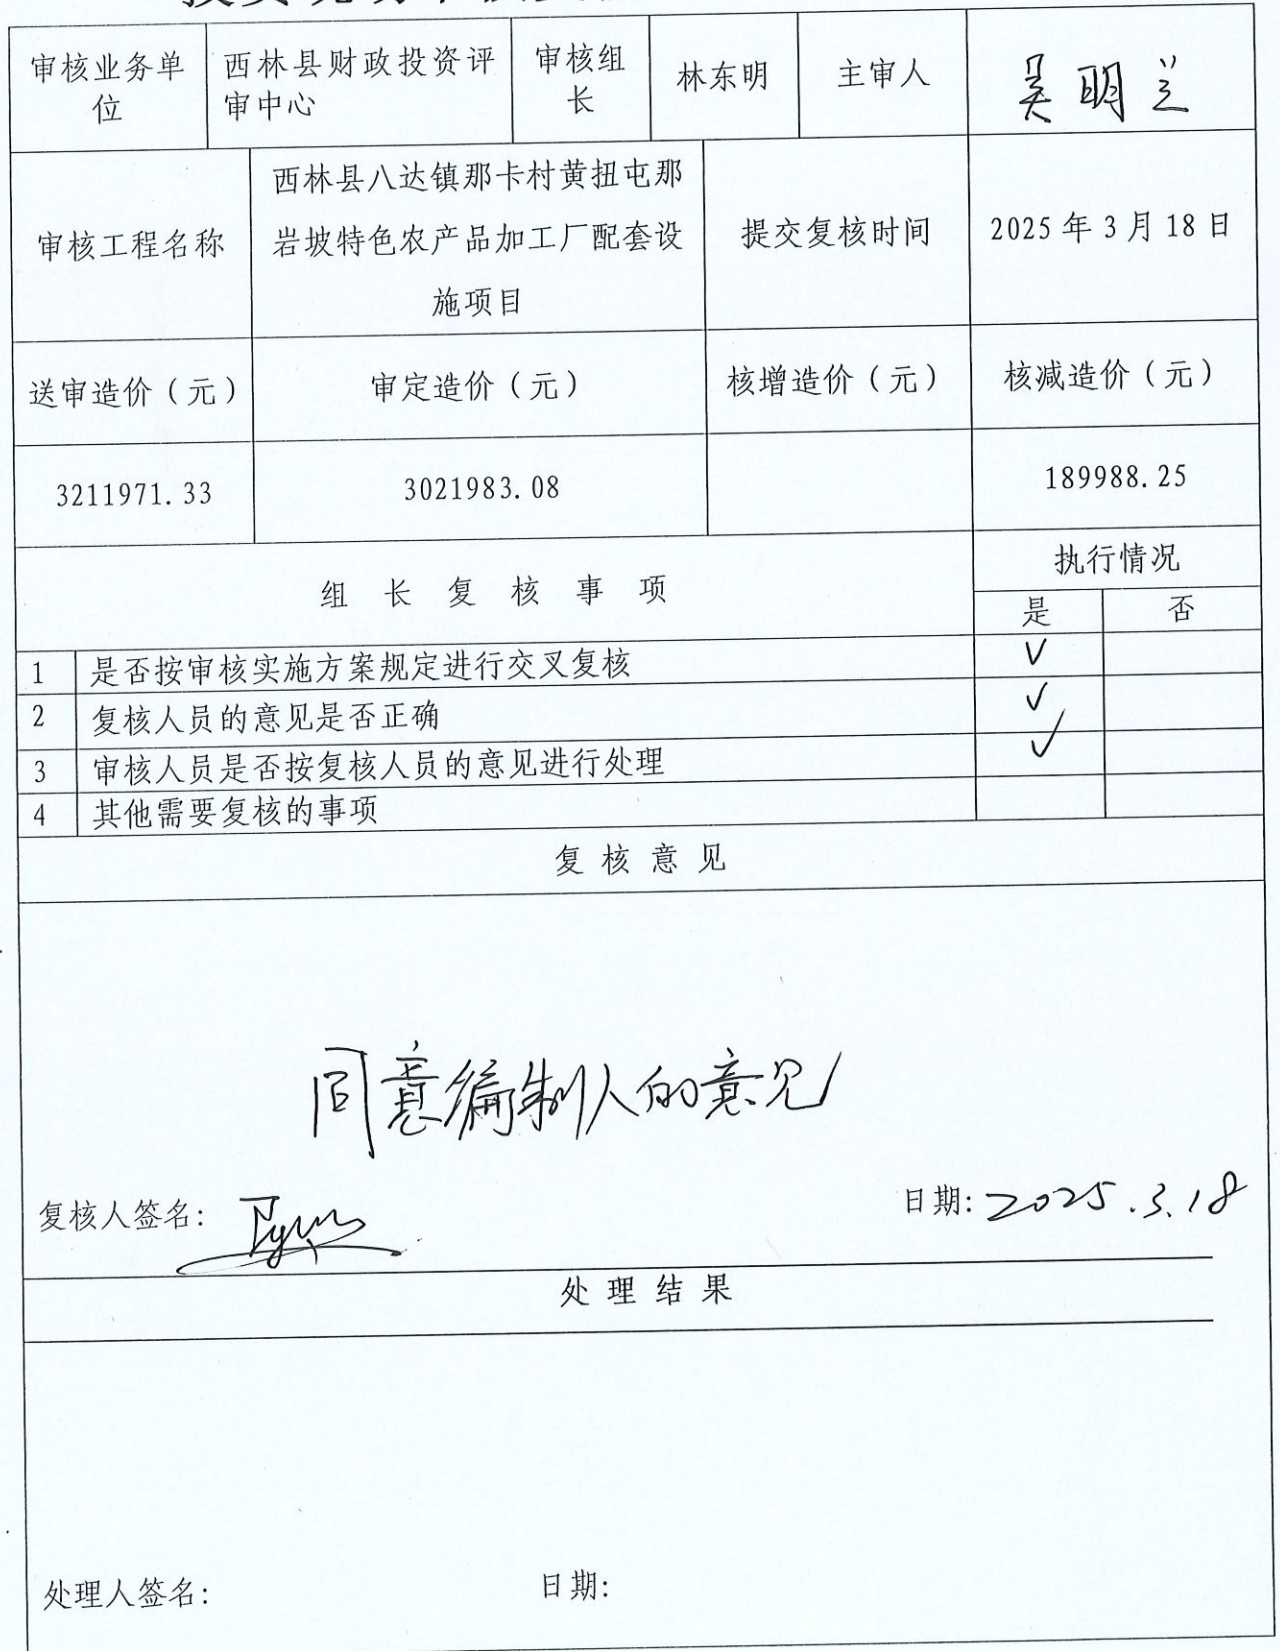 审核业务单位 西林县财政投资评审中心 审核组长 林东明 主审人 吴明兰
审核工程名称 西林县八达镇那卡村黄扭屯那岩坡特色农产品加工厂配套设施项目 提交复核时间 2025年3月18日
送审造价（元） 审定造价（元） 核增造价（元） 核减造价（元）
3211971.33 3021983.08 189988.25
组长复核事项 执行情况
是 否
1 是否按审核实施方案规定进行交叉复核 √
2 复核人员的意见是否正确 √
3 审核人员是否按复核人员的意见进行处理 √
4 其他需要复核的事项
复核意见
同意编制人的意见
复核人签名： 日期：2025.3.18
处理结果
处理人签名： 日期：